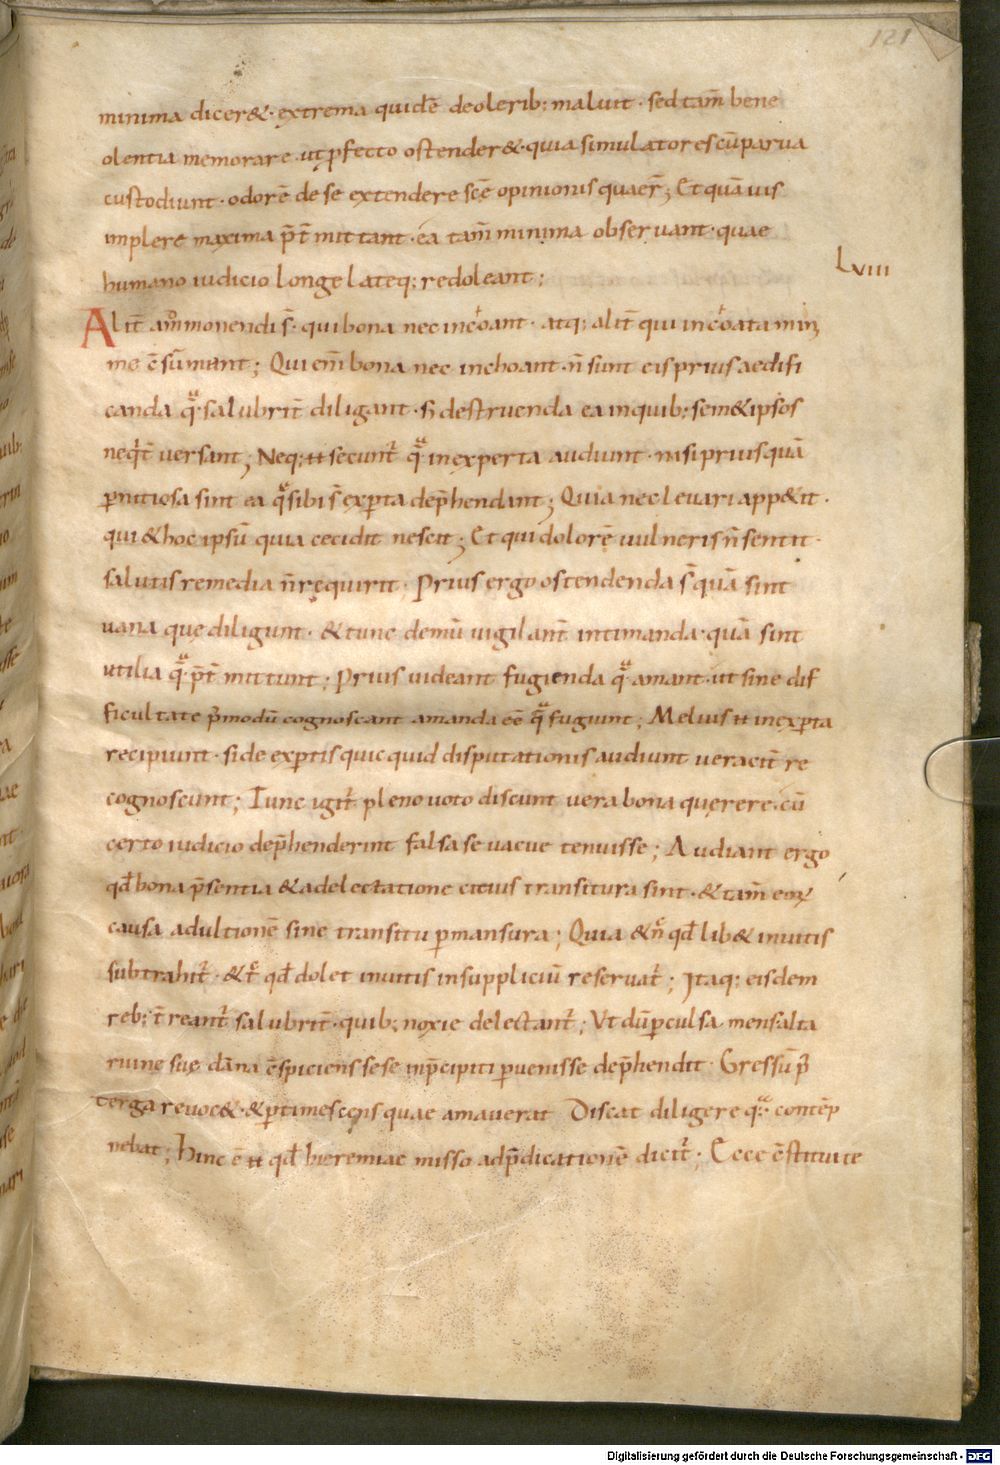 121
minima dicer&· extrema quidē deolerib; maluit · sed tam̄ bene
olentia memorare · ut pfecto ostender&· quia simulatores cū parua
custodiunt · odorē de se extendere scē opinionis quaer̄; Et quā uis
implere maxima p̄t mittant · ea tam̄ minima obseruant · quae
humano iudicio longe lateq; redoleant;
Lviii
Alit̄ ammonendi s̄· qui bona nec inchoant · atq; alit̄ qui inchoata mini
me c̄sūmant; Qui em̄ bona nec inchoant · n̄ sunt eis prius aedifi
canda quae salubrit̄ diligant · s; destruenda ea in quib; sem& ipsos
neqt̄ uersant; Neq; n secunt̄ quae inexperta audiunt · nisi prius quā
pnitiosa sint ea quae sibi s̄ expta dep̄hendant; Quia nec leuari app&it ·
qui & hoc ipsū quia cecidit nescit; Et qui dolorē uulneris n̄ sentit ·
salutis remedia n̄ requirit · Prius ergo ostendenda s̄ quā sint
uana quę diligunt · & tunc demū uigilant̄ intimanda · quā sint
utilia quae p̄t mittunt; Prius uideant fugienda quae amant · ut sine dif
ficultate p̄modū cognoscant amanda eē quae fugiunt; Melius n inexpta
recipiunt · si de exptis quicquid disputationis audiunt ueracit̄ re
cognoscunt; Tunc igit̄ pleno uoto discunt uera bona quęrere · cū
certo iudicio dep̄henderint falsa se uacue tenuisse; Audiant ergo
qd̄ bona p̄sentia & a delectatione citius transitura sint · & tam̄ eoꝝ
causa ad ultionē sine transitu pmansura; Quia & n̄c qd̄ lib& inuitis
subtrahit̄ · & t̄c qd̄ dolet inuitis in suppliciū reseruat̄; Itaq; eisdem
reb; t̄reant̄ salubrit̄ · quib; noxie delectant̄; Vt dū pculsa mens alta
ruine suę dāna c̄spiciens sese in p̄cipiti puenisse dep̄hendit · Gressū p̄
terga reuoc&· & ptimescens quae amauerat Discat diligere quae contēp
nebat; Hinc ē n qd̄ hieremiae misso ad p̄dicationē dicit̄; Ecce c̄stitui te
Digitalisierung gefördert durch die Deutsche Forschungsgemeinschaft - DFG